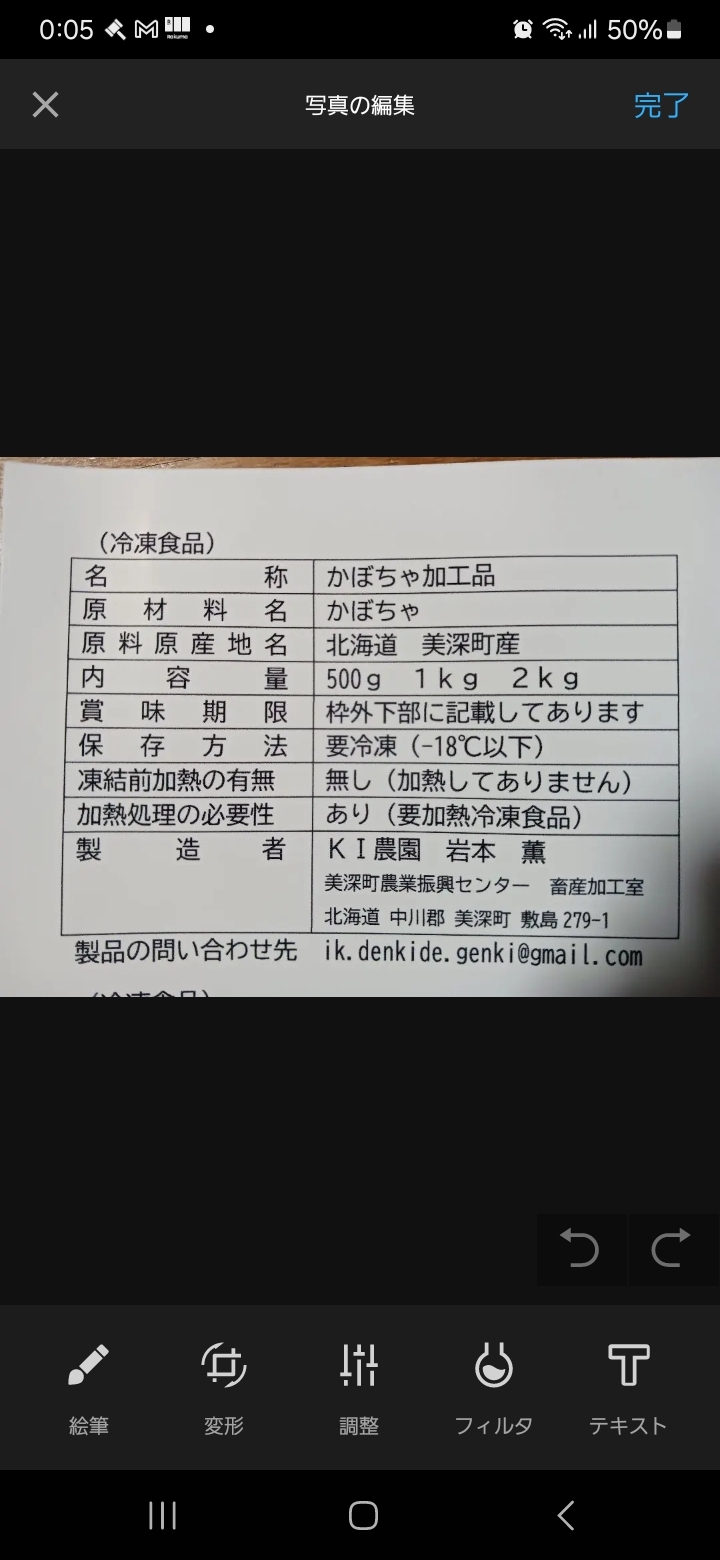 0:05
50%
写真の編集
完了
（冷凍食品）
名称 かぼちゃ加工品
原材料名 かぼちゃ
原料原産地名 北海道 美深町産
内容量 500g 1kg 2kg
賞味期限 枠外下部に記載してあります
保存方法 要冷凍（-18℃以下）
凍結前加熱の有無 無し（加熱してありません）
加熱処理の必要性 あり（要加熱冷凍食品）
製造者 ＫＩ農園 岩本 薫
美深町農業振興センター 畜産加工室
北海道 中川郡 美深町 敷島 279-1
製品の問い合わせ先 ik.denkide.genki@gmail.com
絵筆
変形
調整
フィルタ
テキスト